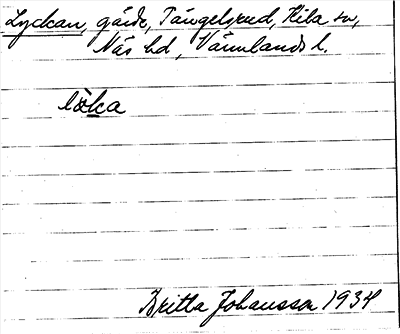 Lyckan, gärde, Tängelsrud, Kila sn,
Näs hd, Värmlands l.
løka
Britta Johansson 1934